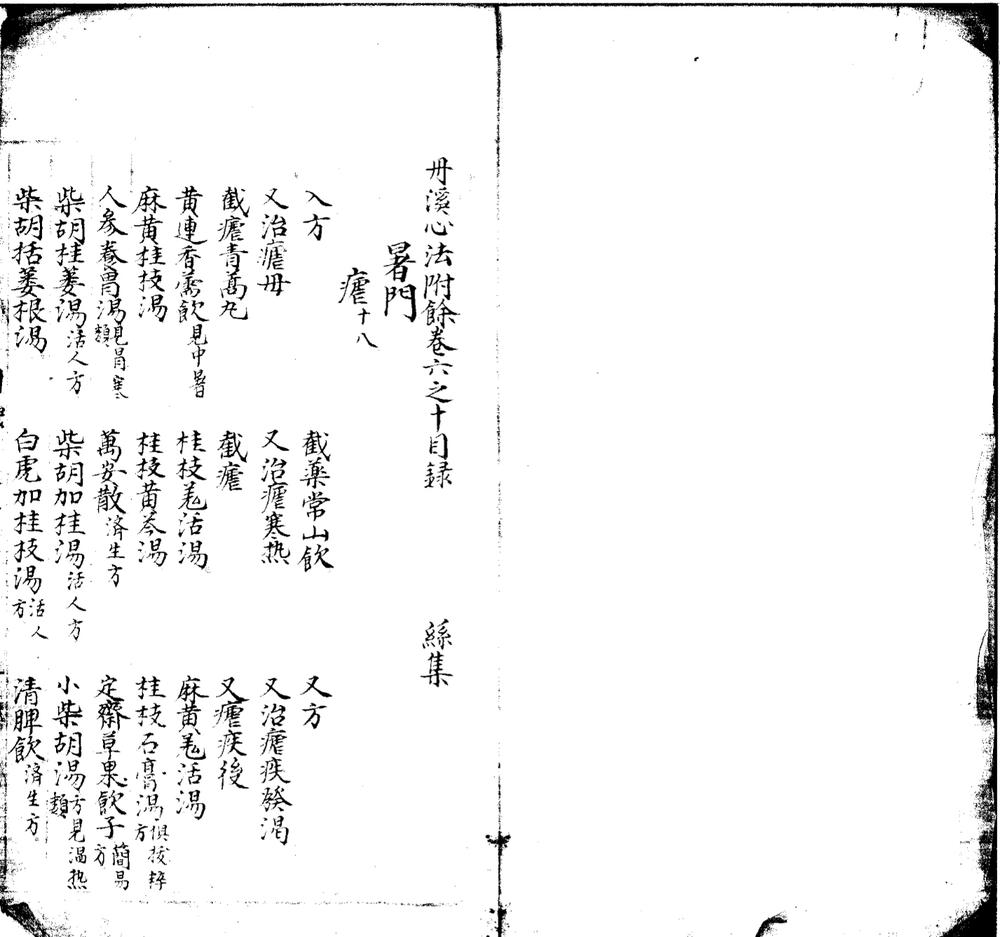 丹溪心法附餘卷六之十目録　絲集
暑門
瘧十八
入方　截藥常山飲　又方
又治瘧母　又治瘧寒热　又治瘧疾發渴
截瘧青蒿丸　截瘧　又瘧疾後
黄連香薷飲見中暑　桂枝羗活湯　麻黄羗活湯
麻黄桂枝湯　桂枝黄芩湯　桂枝石膏湯俱拔粹方
人參養胃湯見冐寒類　萬安散済生方　定齋草果飲子簡易方
柴胡桂姜湯活人方　柴胡加桂湯活人方　小柴胡湯方見温热類
柴胡括蔞根湯　白虎加桂枝湯活人方　清脾飲済生方